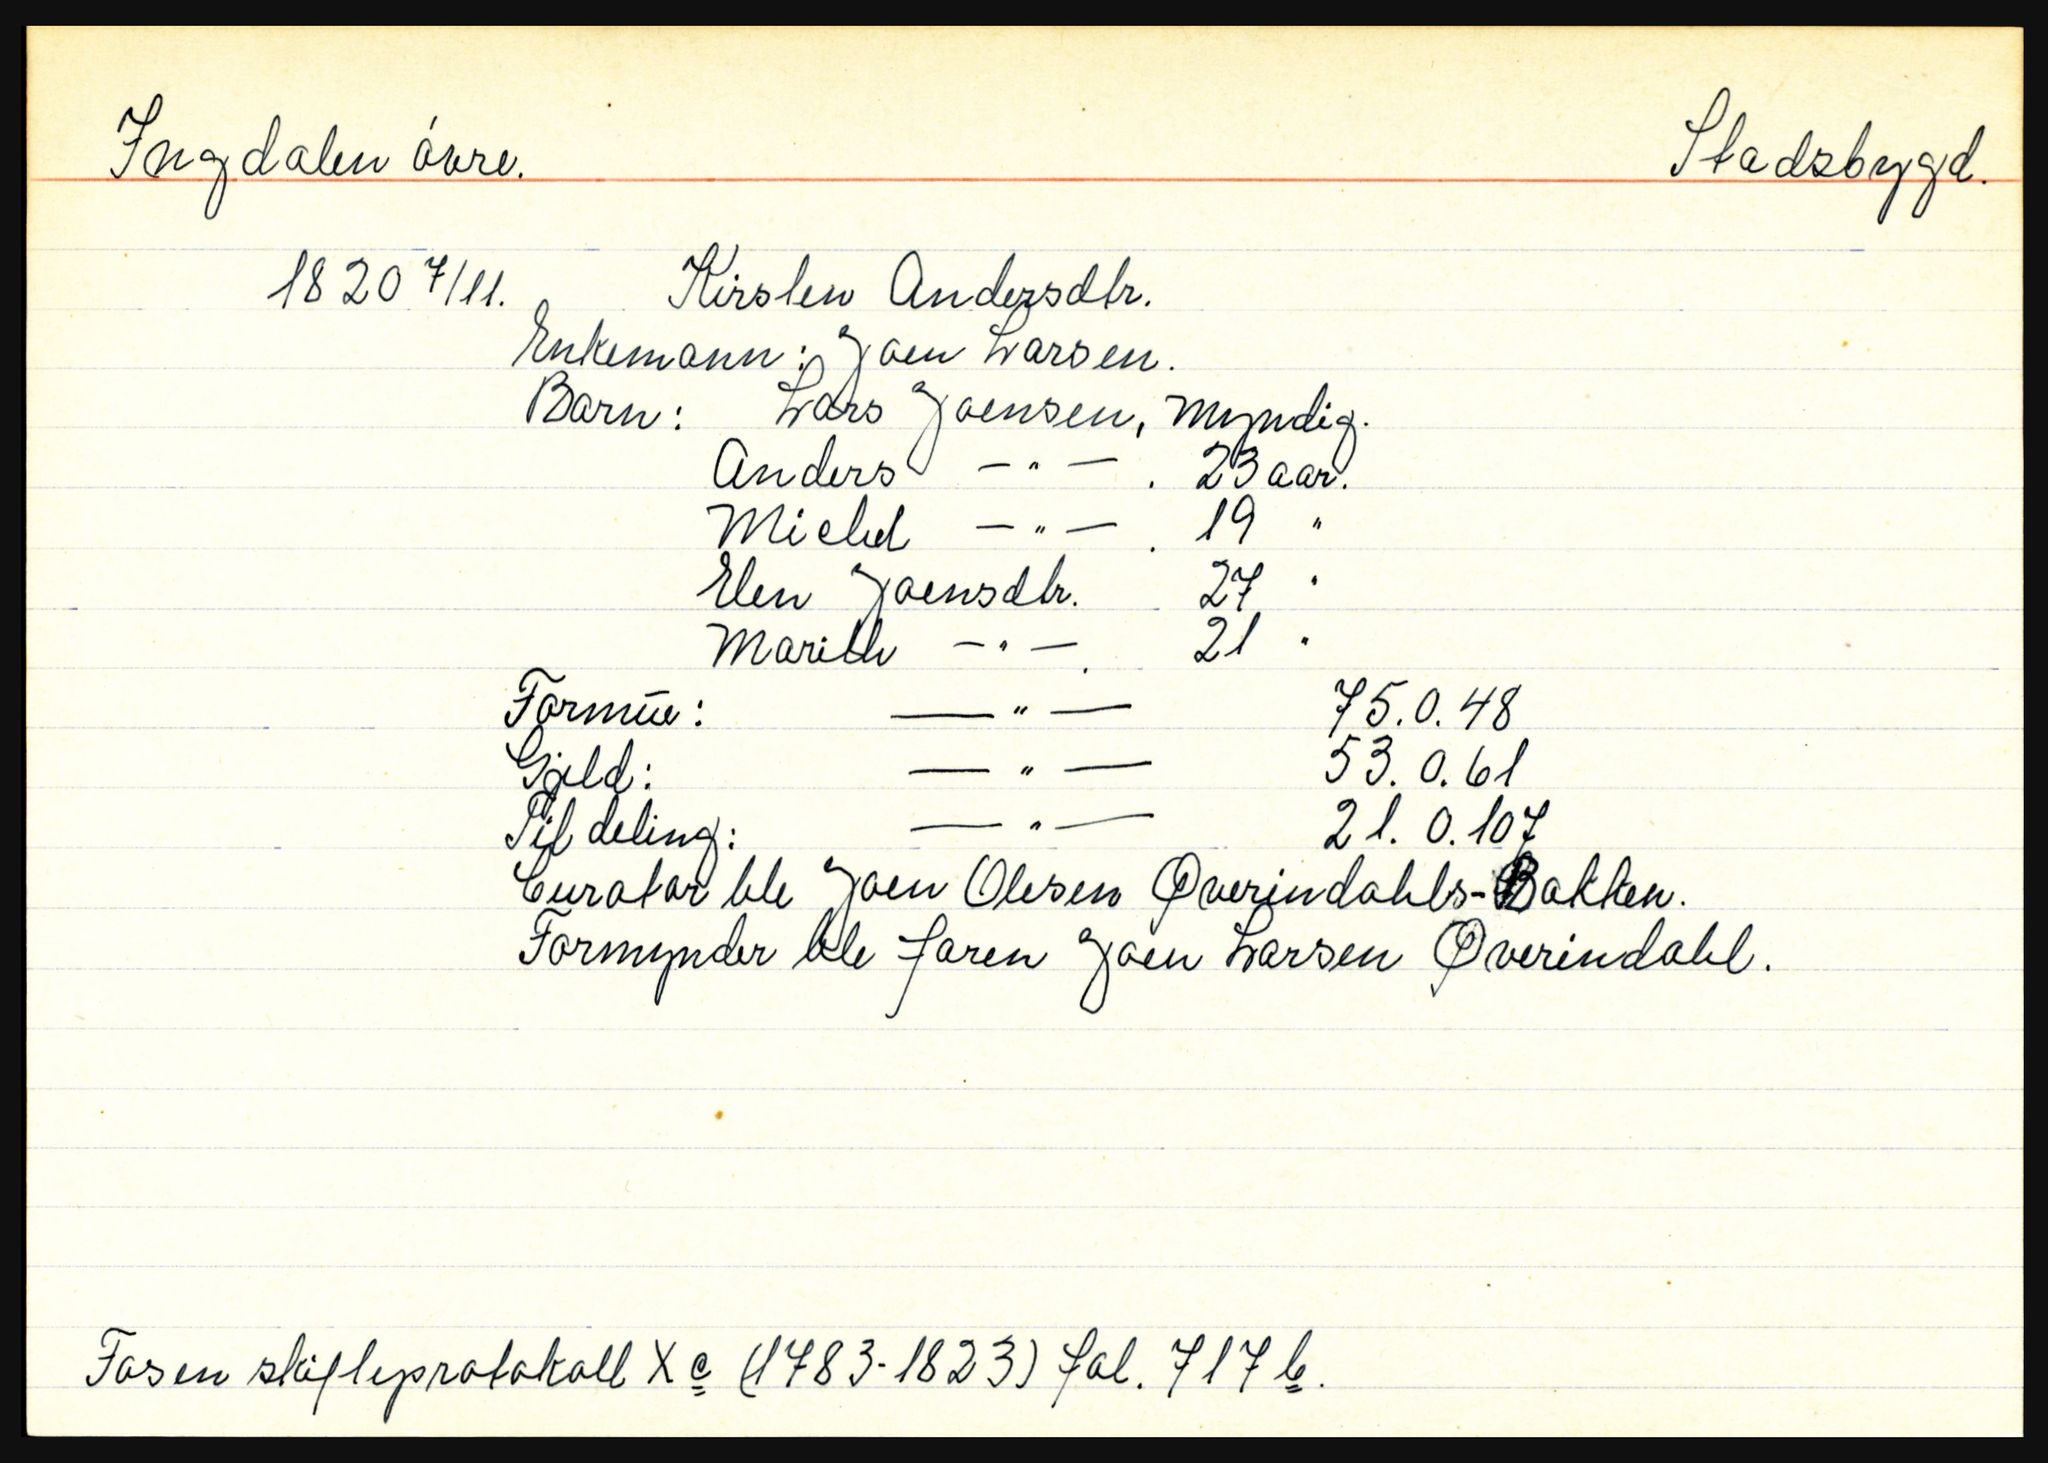 Ingdalen óvre. Stadsbygd.
1820 7/11. Kirsten Andersdtr.
Enkemann: Joen Larsen.
Barn: Lars Joensen, Myndig.
Anders — " — . 23 aar.
Michel — " — . 19 "
Elen Joensdtr. 27 "
Marith — " — . 21 "
Formūe: — " — 75.0.48
Gjeld: — " — 53.0.61
Til deling: — " — 21.0.107
Curator ble Joen Olesen Øverindahls-Bakken.
Formynder ble faren Joen Larsen Øverindahl.
Fosen skifteprotokoll X c (1783-1823) fol. 717 b.